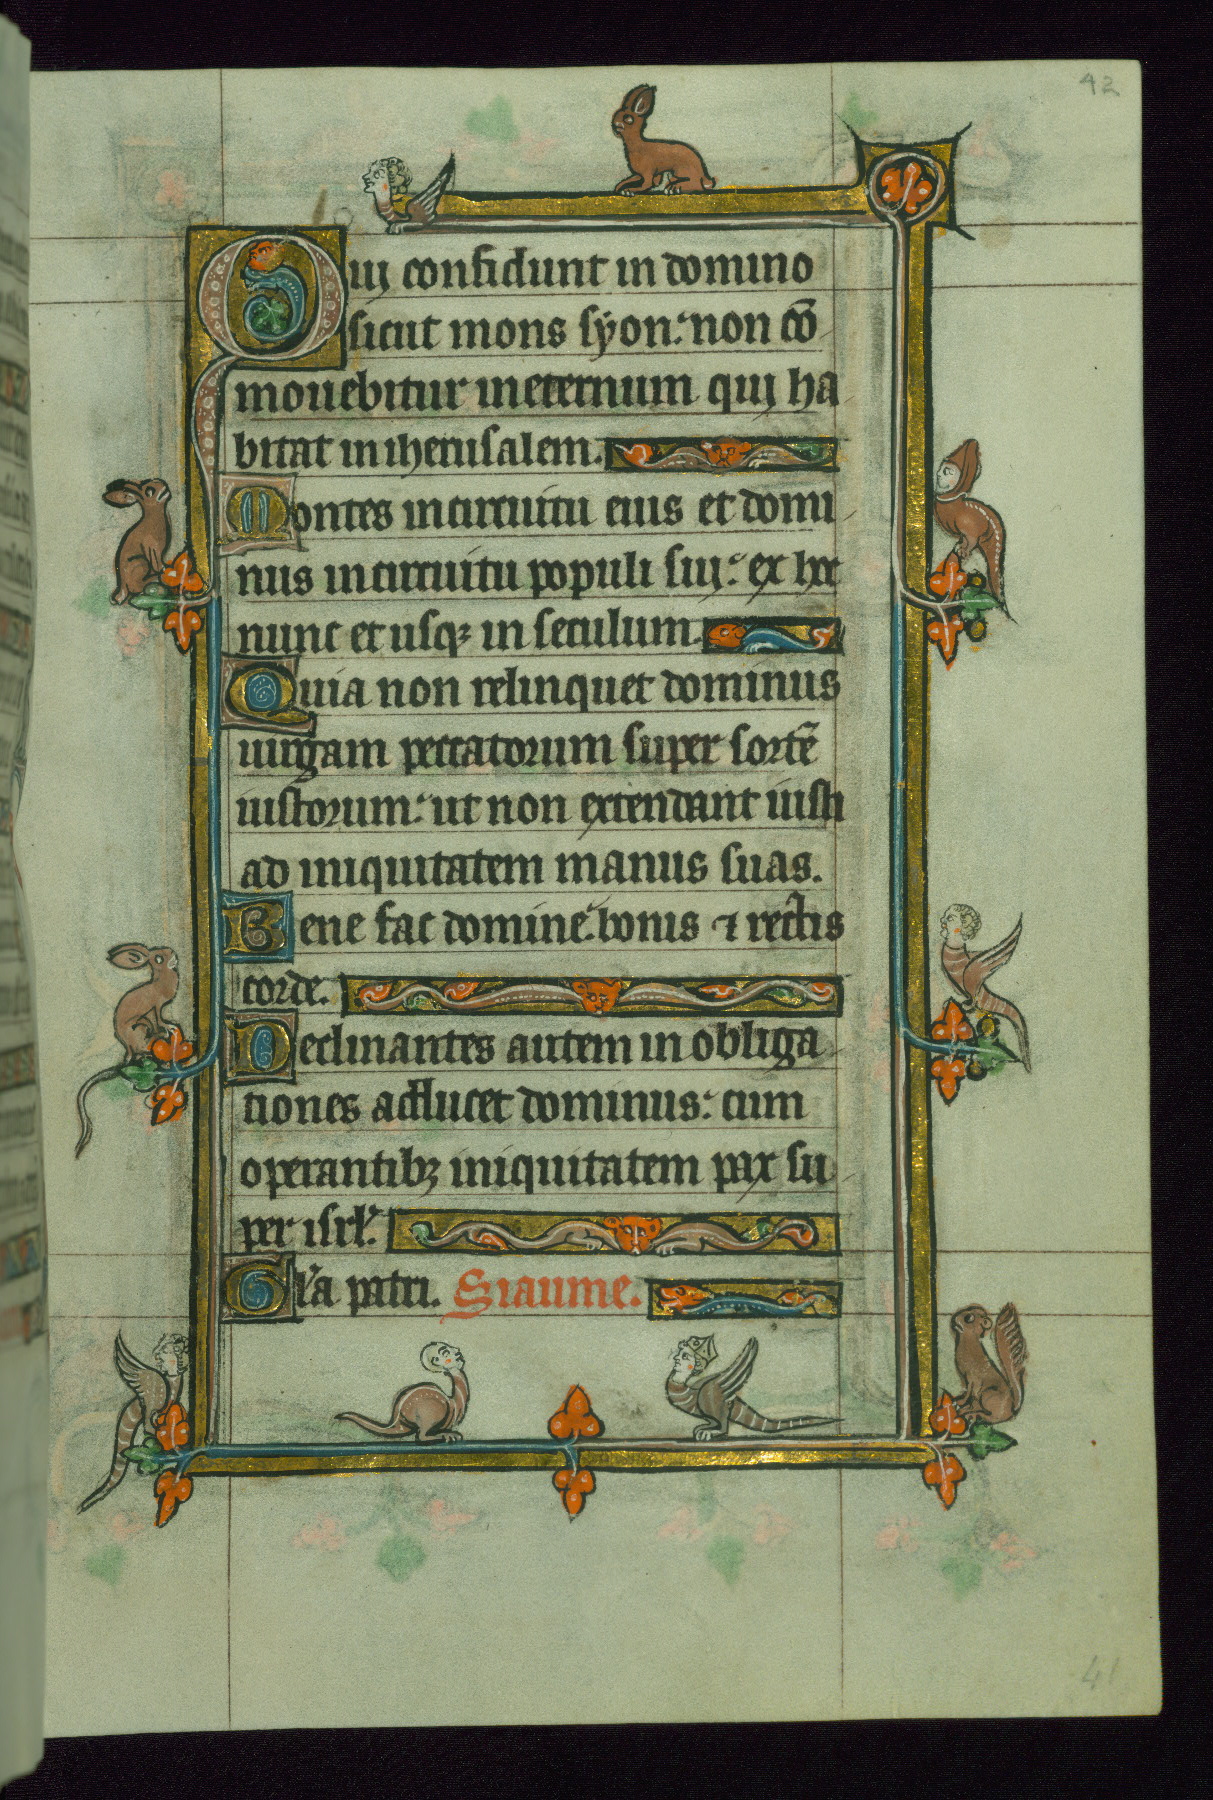 42
Quj confidunt in domino
sicut mons syon: non cō
mouebitur ineternum quj ha
bitat in iherusalem.
Montes incircuitu eius et domi
nus incircuitu populi suj: ex hoc
nunc et usqz in seculum.
Quia non relinquet dominus
uirgam peccatorum super sortē
iustorum: ut non extendant iusti
ad iniquitatem manus suas.
Bene fac domine bonis ⁊ rectis
corde.
Declinantes autem in obliga
tiones adducet dominus: cum
operantibz iniquitatem pax su
per isrl'.
Gl'a patri. Siaume.
41